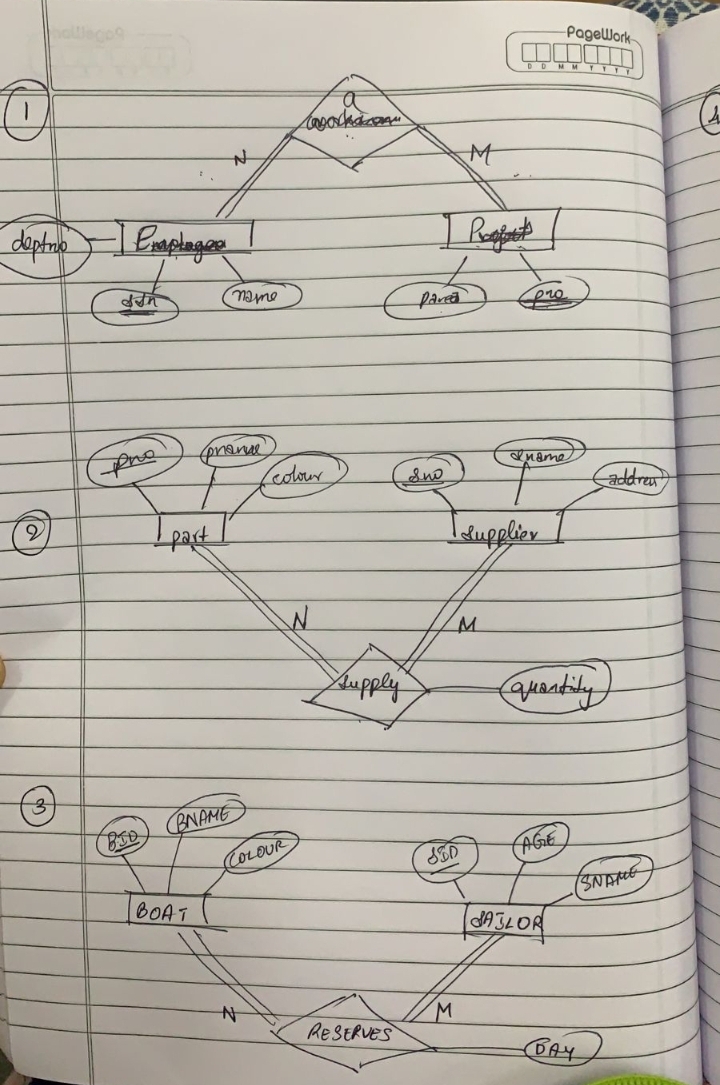 PageWork
D D M M Y Y Y Y
1
N
M
deptno
Employee
Project
ssn
name
pno
pno
pname
colour
sno
sname
address
2
part
supplier
N
M
supply
quantity
3
BID
BNAME
COLOUR
SID
AGE
SNAME
BOAT
SAILOR
N
M
RESERVES
DAY